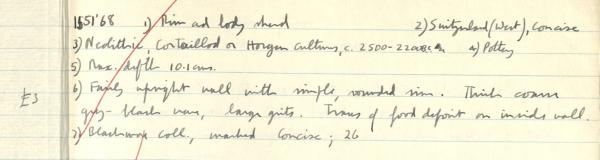 1551'68 1) Rim and body sherd 2) Switzerland (West), Concise
3) Neolithic, Cortaillod or Horgen cultures, c. 2500-2200 B.C. 4) Pottery
5) Max. depth 10.1 cms.
6) Fairly upright wall with simple, rounded rim. Thick coarse
E3
grey-black ware, large grits. Traces of food deposit on inside wall.
7) Blackmore coll., marked Concise; 26